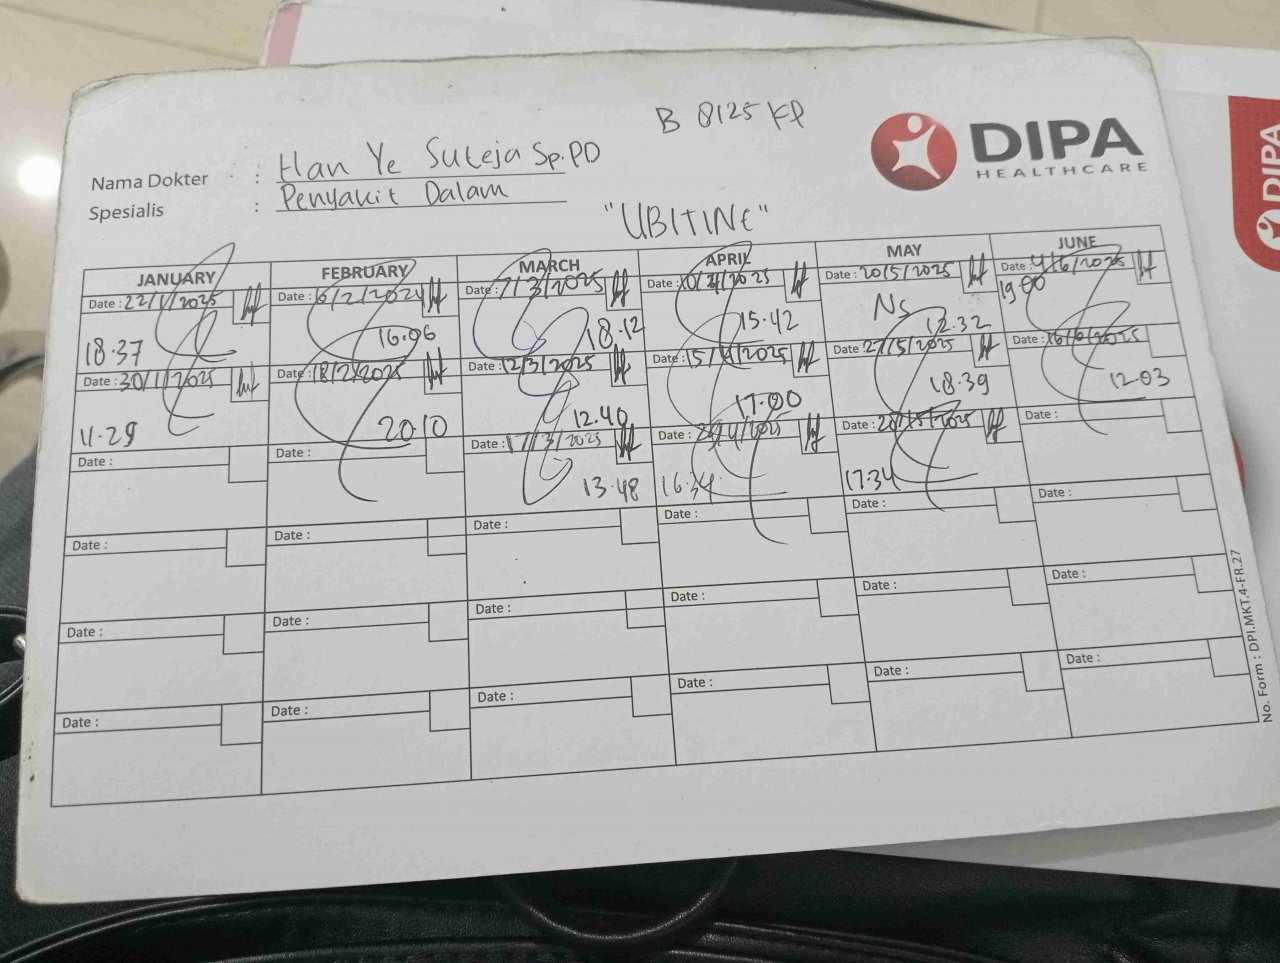 B 8125 KP
DIPA
HEALTHCARE
Nama Dokter : Han Ye Suteja Sp.PD
Spesialis : Penyakit Dalam
"UBITINE"
JANUARY FEBRUARY MARCH APRIL MAY JUNE
Date : 22/1/2025 Date : 6/2/2024 Date : 7/3/2025 Date : 10/4/2025 Date : 20/5/2025 Date : 4/6/2025
18.37 16.06 18.12 15.42 Ns 12.32 19.00
Date : 30/1/2025 Date : 18/2/2025 Date : 12/3/2025 Date : 15/4/2025 Date : 27/5/2025 Date : 16/6/2025
11.29 20.10 12.40 17.00 18.39 12.03
Date : Date : Date : 17/3/2025 Date : /4/2025 Date : /5/2025 Date :
13.48 16.34 17.34
Date : Date : Date : Date : Date : Date :
Date : Date : Date : Date : Date : Date :
Date : Date : Date : Date : Date : Date :
No. Form : DPI.MKT.4-FR.27
DIPA